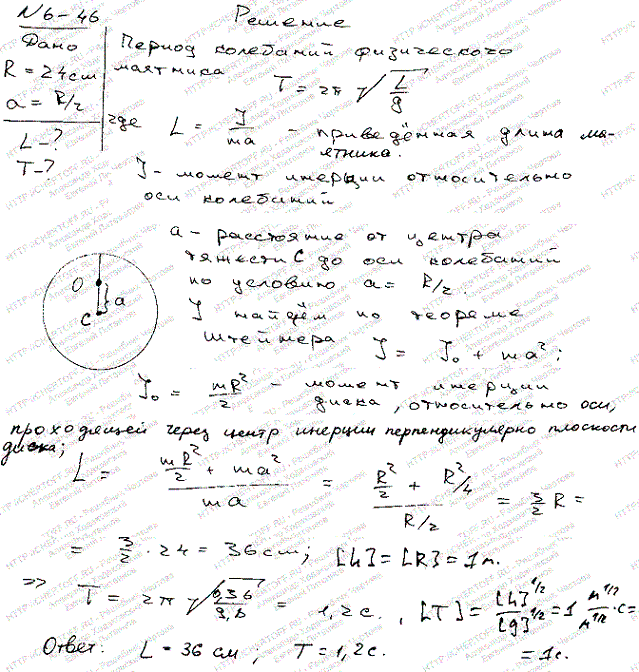 N6-46 Решение
Дано
R = 24см
a = R/2
L-?
T-?
Период колебаний физического
маятника
T = 2π √(L/g)
где L = J/ma - приведённая длина ма-
ятника.
J - момент инерции относительно
оси колебаний
a - расстояние от центра
тяжести C до оси колебаний
по условию a = R/2.
J найдём по теореме
Штейнера J = J₀ + ma²;
O
a
C
J₀ = mR²/2 - момент инерции
диска, относительно оси,
проходящей через центр инерции перпендикулярно плоскости
диска;
L = (mR²/2 + ma²)/ma = (R²/2 + R²/4)/(R/2) = 3/2 R =
= 3/2 · 24 = 36см; [L] = [R] = 1м.
=> T = 2π √(0,36/9,8) = 1,2с., [T] = [L]^1/2/[g]^1/2 = 1 м^1/2/м^1/2 · с =
= 1с.
Ответ: L = 36 см; T = 1,2с.